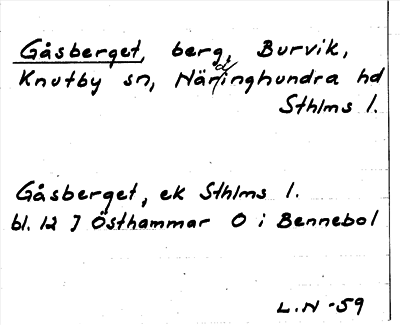 Gåsberget, berg, Burvik,
Knutby sn, Närdinghundra hd
Sthlms l.
Gåsberget, ek Sthlms l.
bl. 12 J Östhammar O i Bennebol
L.N -59